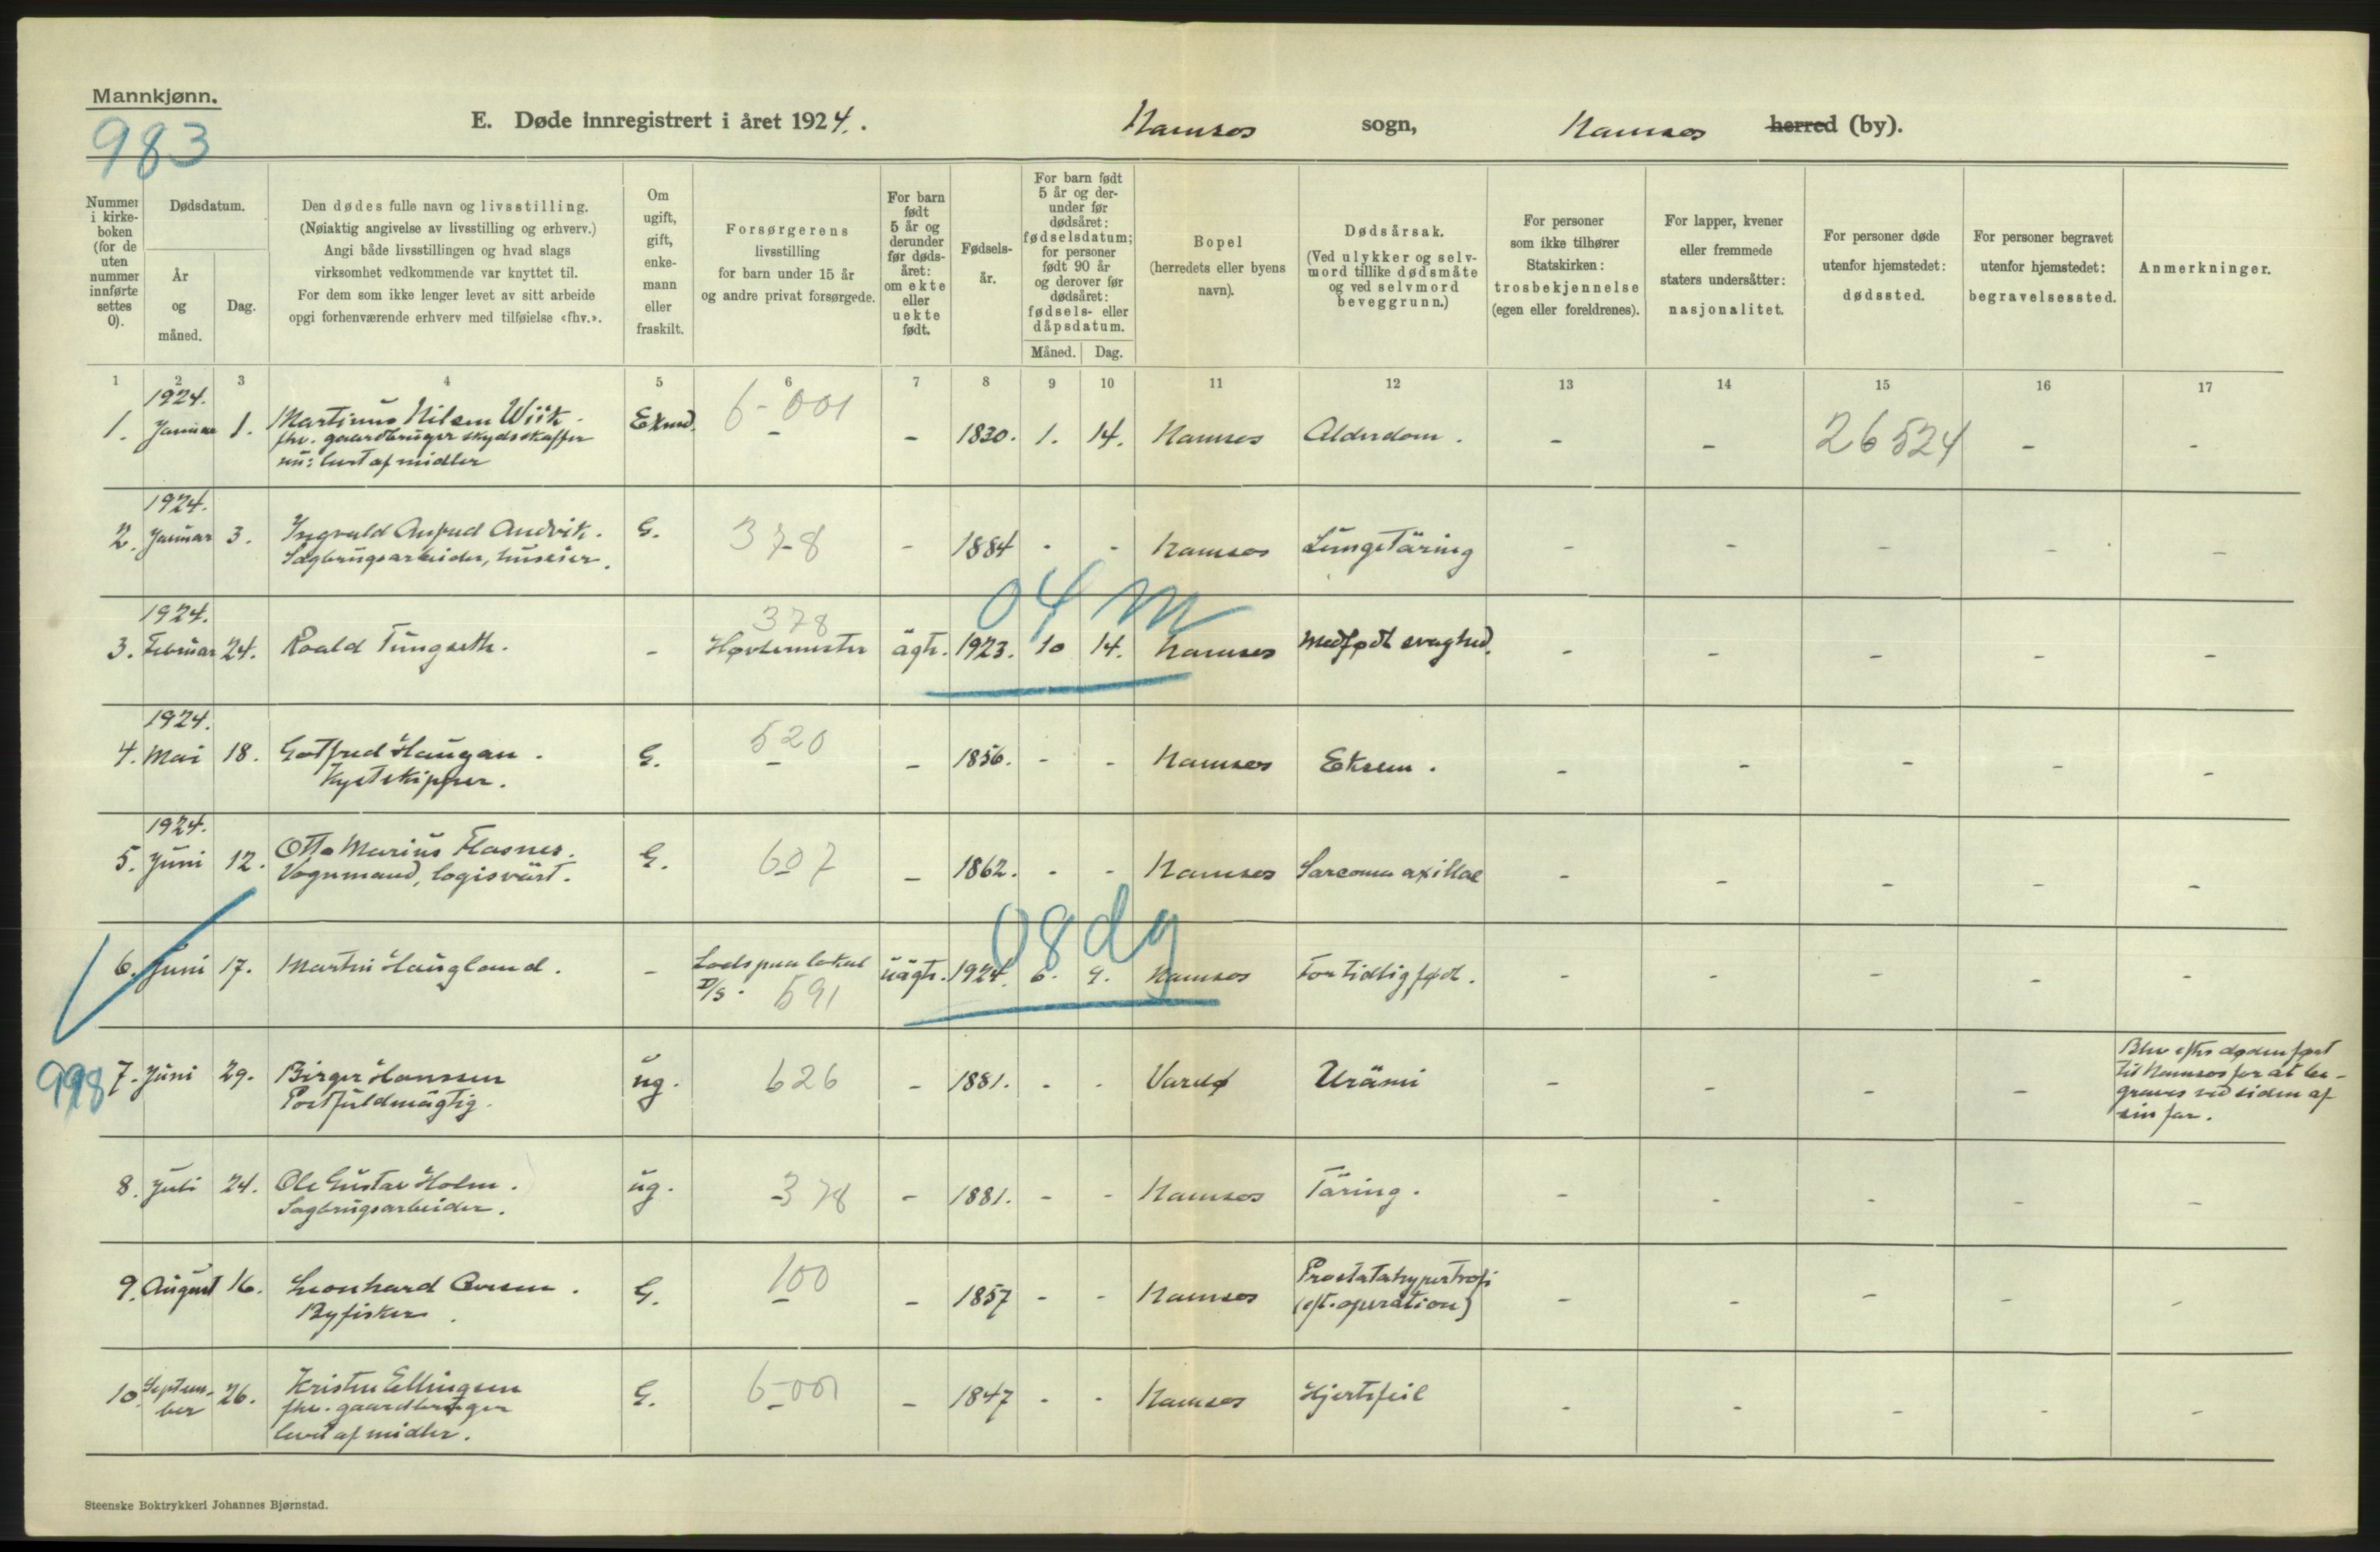 Mannkjønn.
983
E. Døde innregistrert i året 1924. Namsos sogn, Namsos herred (by).
Nummer i kirke-boken (for de uten nummer innførte settes 0).
Dødsdatum.
År og måned.
Dag.
Den dødes fulle navn og livsstilling.
(Nøiaktig angivelse av livsstilling og erhverv.)
Angi både livsstillingen og hvad slags
virksomhet vedkommende var knyttet til.
For dem som ikke lenger levet av sitt arbeide
opgi forhenværende erhverv med tilføielse «fhv.».
Om ugift, gift, enke-mann eller fraskilt.
Forsørgerens
livsstilling
for barn under 15 år
og andre privat forsørgede.
For barn født 5 år og derunder før døds-året: om ekte eller uekte født.
Fødsels-år.
For barn født 5 år og der-under før dødsåret: fødselsdatum; for personer født 90 år og derover før dødsåret: fødsels- eller dåpsdatum.
Måned. Dag.
Bopel
(herredets eller byens
navn).
Dødsårsak.
(Ved ulykker og selv-
mord tillike dødsmåte
og ved selvmord
beveggrunn.)
For personer
som ikke tilhører
Statskirken:
trosbekjennelse
(egen eller foreldrenes).
For lapper, kvener
eller fremmede
staters undersåtter:
nasjonalitet.
For personer døde
utenfor hjemstedet:
dødssted.
For personer begravet
utenfor hjemstedet:
begravelsessted.
Anmerkninger.
1 2 3 4 5 6 7 8 9 10 11 12 13 14 15 16 17
1924.
1. Januar 1. Martinus Nilsen Wiik. Ekmd. 6-001 - 1830. 1. 14. Namsos Alderdom. - - 26524 - -
fhv. gaardbruger skydsskaffer
nu: levet af midler
1924.
2. Januar 3. Ingvald Anfred Andvik. G. 378 - 1884 - - Namsos Lungetäring - - - - -
Sagbrugsarbeider, huseier.
04 m
1924. 378
3. Februar 24. Roald Tungseth. - Høvlemester ägte. 1923. 10 14. Namsos Medfødt svaghed. - - - - -
1924.
4. Mai 18. Gotfred Haugan. G. 520 - 1856. - - Namsos Eksem. - - - - -
Kystskipper.
1924.
5. Juni 12. Otto Marius Flasnes. G. 607 - 1862. - - Namsos Sarcoma axillae - - - - -
Vognmand, logisvärt.
08 dg
6. Juni 17. Martin Haugland. - Lods paa lokal uägte. 1924. 6. 9. Namsos For tidlig født. - - - - -
D/S. 591
998 7. Juni 29. Birger Hanssen ug. 626 - 1881. - - Vardø Urämi - - - -
Postfuldmägtig.
Blev efter døden ført
til Namsos for at be-
graves ved siden af
sin far.
8. Juli 24. Ole Gustav Holm. ug. 378 - 1881. - - Namsos Täring. - - - - -
Sagbrugsarbeider.
9. August 16. Leonhard G. 100 - 1857 - - Namsos Prostatahypertrofi - - - - -
Byfisker. (eft. operation)
10. Septem-ber 26. Kristen Ellingsen G. 6-001 - 1847 - - Namsos Hjertefeil - - - - -
fhv. gaardbruger
levet af midler.
Steenske Boktrykkeri Johannes Bjørnstad.